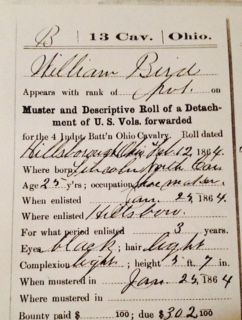 B | 13 Cav. | Ohio.
William Bird
Appears with rank of Pvt. on
Muster and Descriptive Roll of a Detach-
ment of U. S. Vols. forwarded
for the 4 Indpt. Batt'n Ohio Cavalry. Roll dated
Hillsborough Ohio Feb 12, 1864.
Where born Lincoln North Car.
Age 25 y'rs; occupation Shoemaker
When enlisted Jan. 25, 1864.
Where enlisted Hillsboro.
For what period enlisted 3 years.
Eyes black; hair light
Complexion light; height 5 ft. 7 in.
When mustered in Jan. 25, 1864
Where mustered in
Bounty paid $ 100; due $302 100